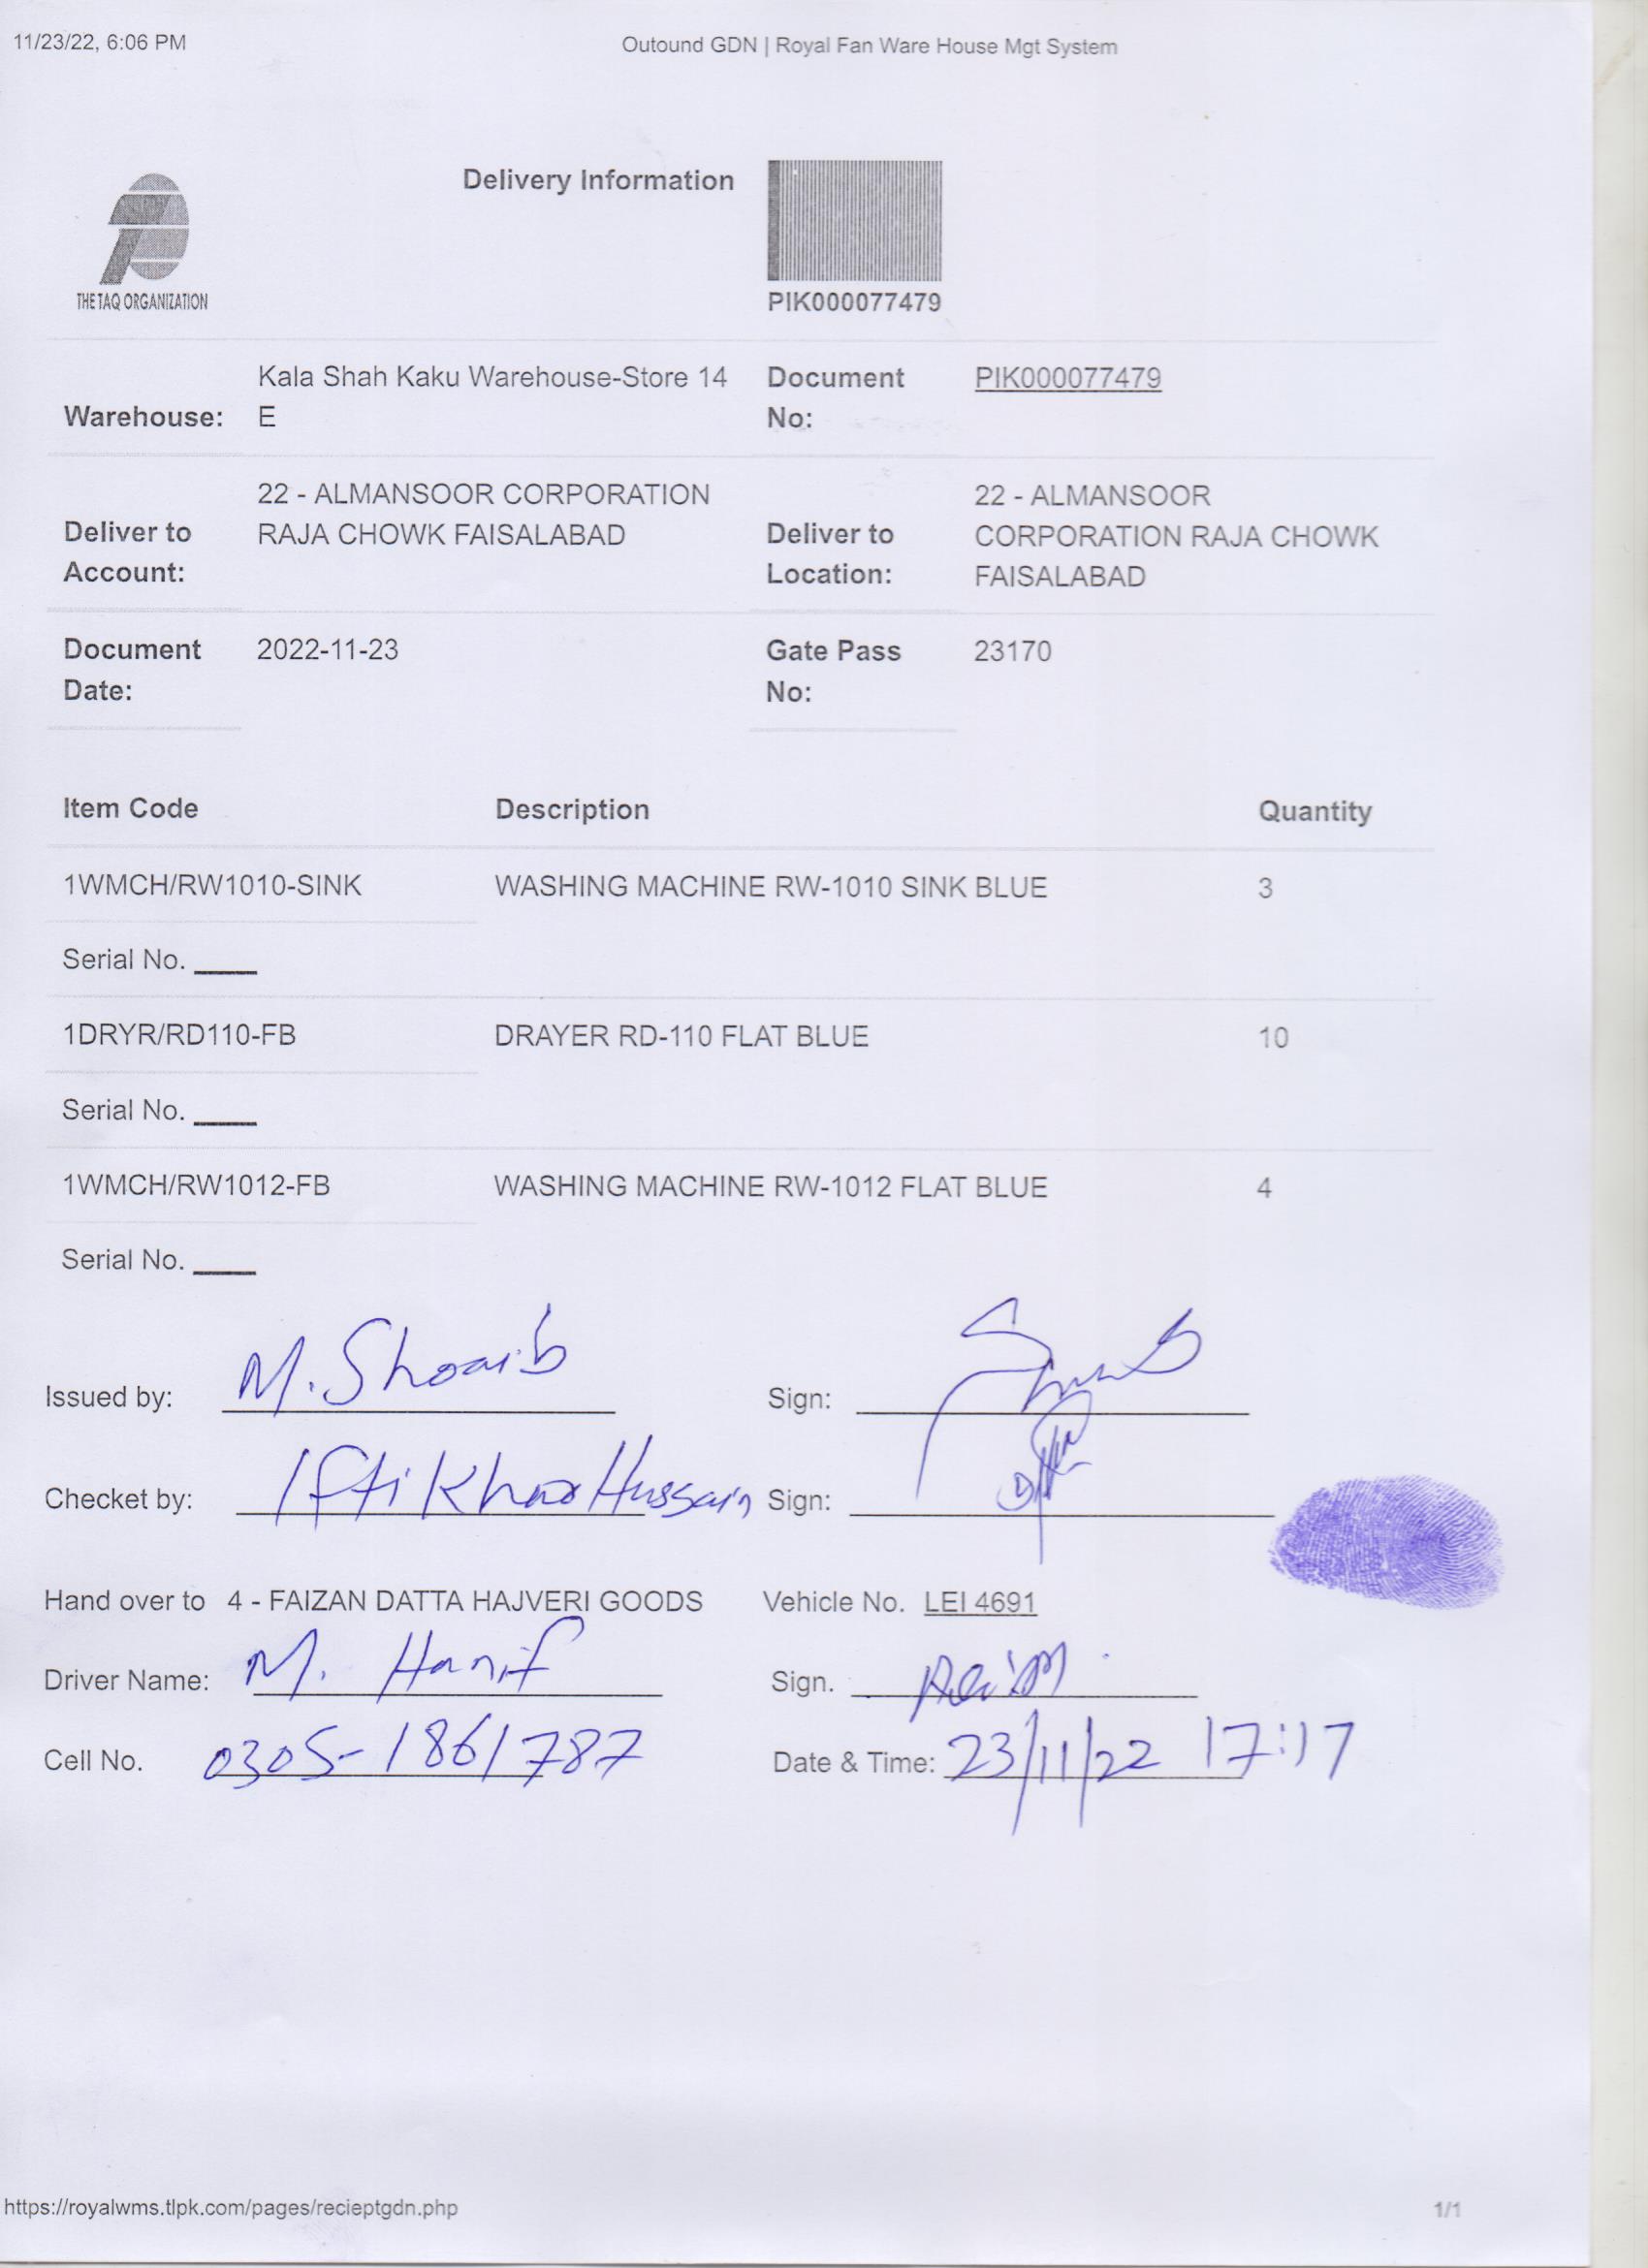 11/23/22, 6:06 PM
Outound GDN | Royal Fan Ware House Mgt System
Delivery Information
THE TAQ ORGANIZATION
PIK000077479
Warehouse: Kala Shah Kaku Warehouse-Store 14 E
Document No: PIK000077479
Deliver to Account: 22 - ALMANSOOR CORPORATION RAJA CHOWK FAISALABAD
Deliver to Location: 22 - ALMANSOOR CORPORATION RAJA CHOWK FAISALABAD
Document Date: 2022-11-23
Gate Pass No: 23170
Item Code Description Quantity
1WMCH/RW1010-SINK WASHING MACHINE RW-1010 SINK BLUE 3
Serial No. ____
1DRYR/RD110-FB DRAYER RD-110 FLAT BLUE 10
Serial No. ____
1WMCH/RW1012-FB WASHING MACHINE RW-1012 FLAT BLUE 4
Serial No. ____
Issued by: M. Shoaib Sign:
Checket by: Iftikhar Hussain Sign:
Hand over to 4 - FAIZAN DATTA HAJVERI GOODS Vehicle No. LEI 4691
Driver Name: M. Hanif Sign.
Cell No. 0305-1861787 Date & Time: 23/11/22 17:17
https://royalwms.tlpk.com/pages/recieptgdn.php 1/1